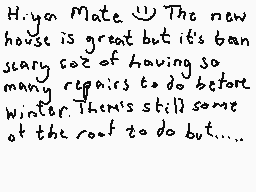 Hiya Mate :) The new
house is great but it's been
scary coz of having so
many repairs to do before
winter. There's still some
of the roof to do but.....